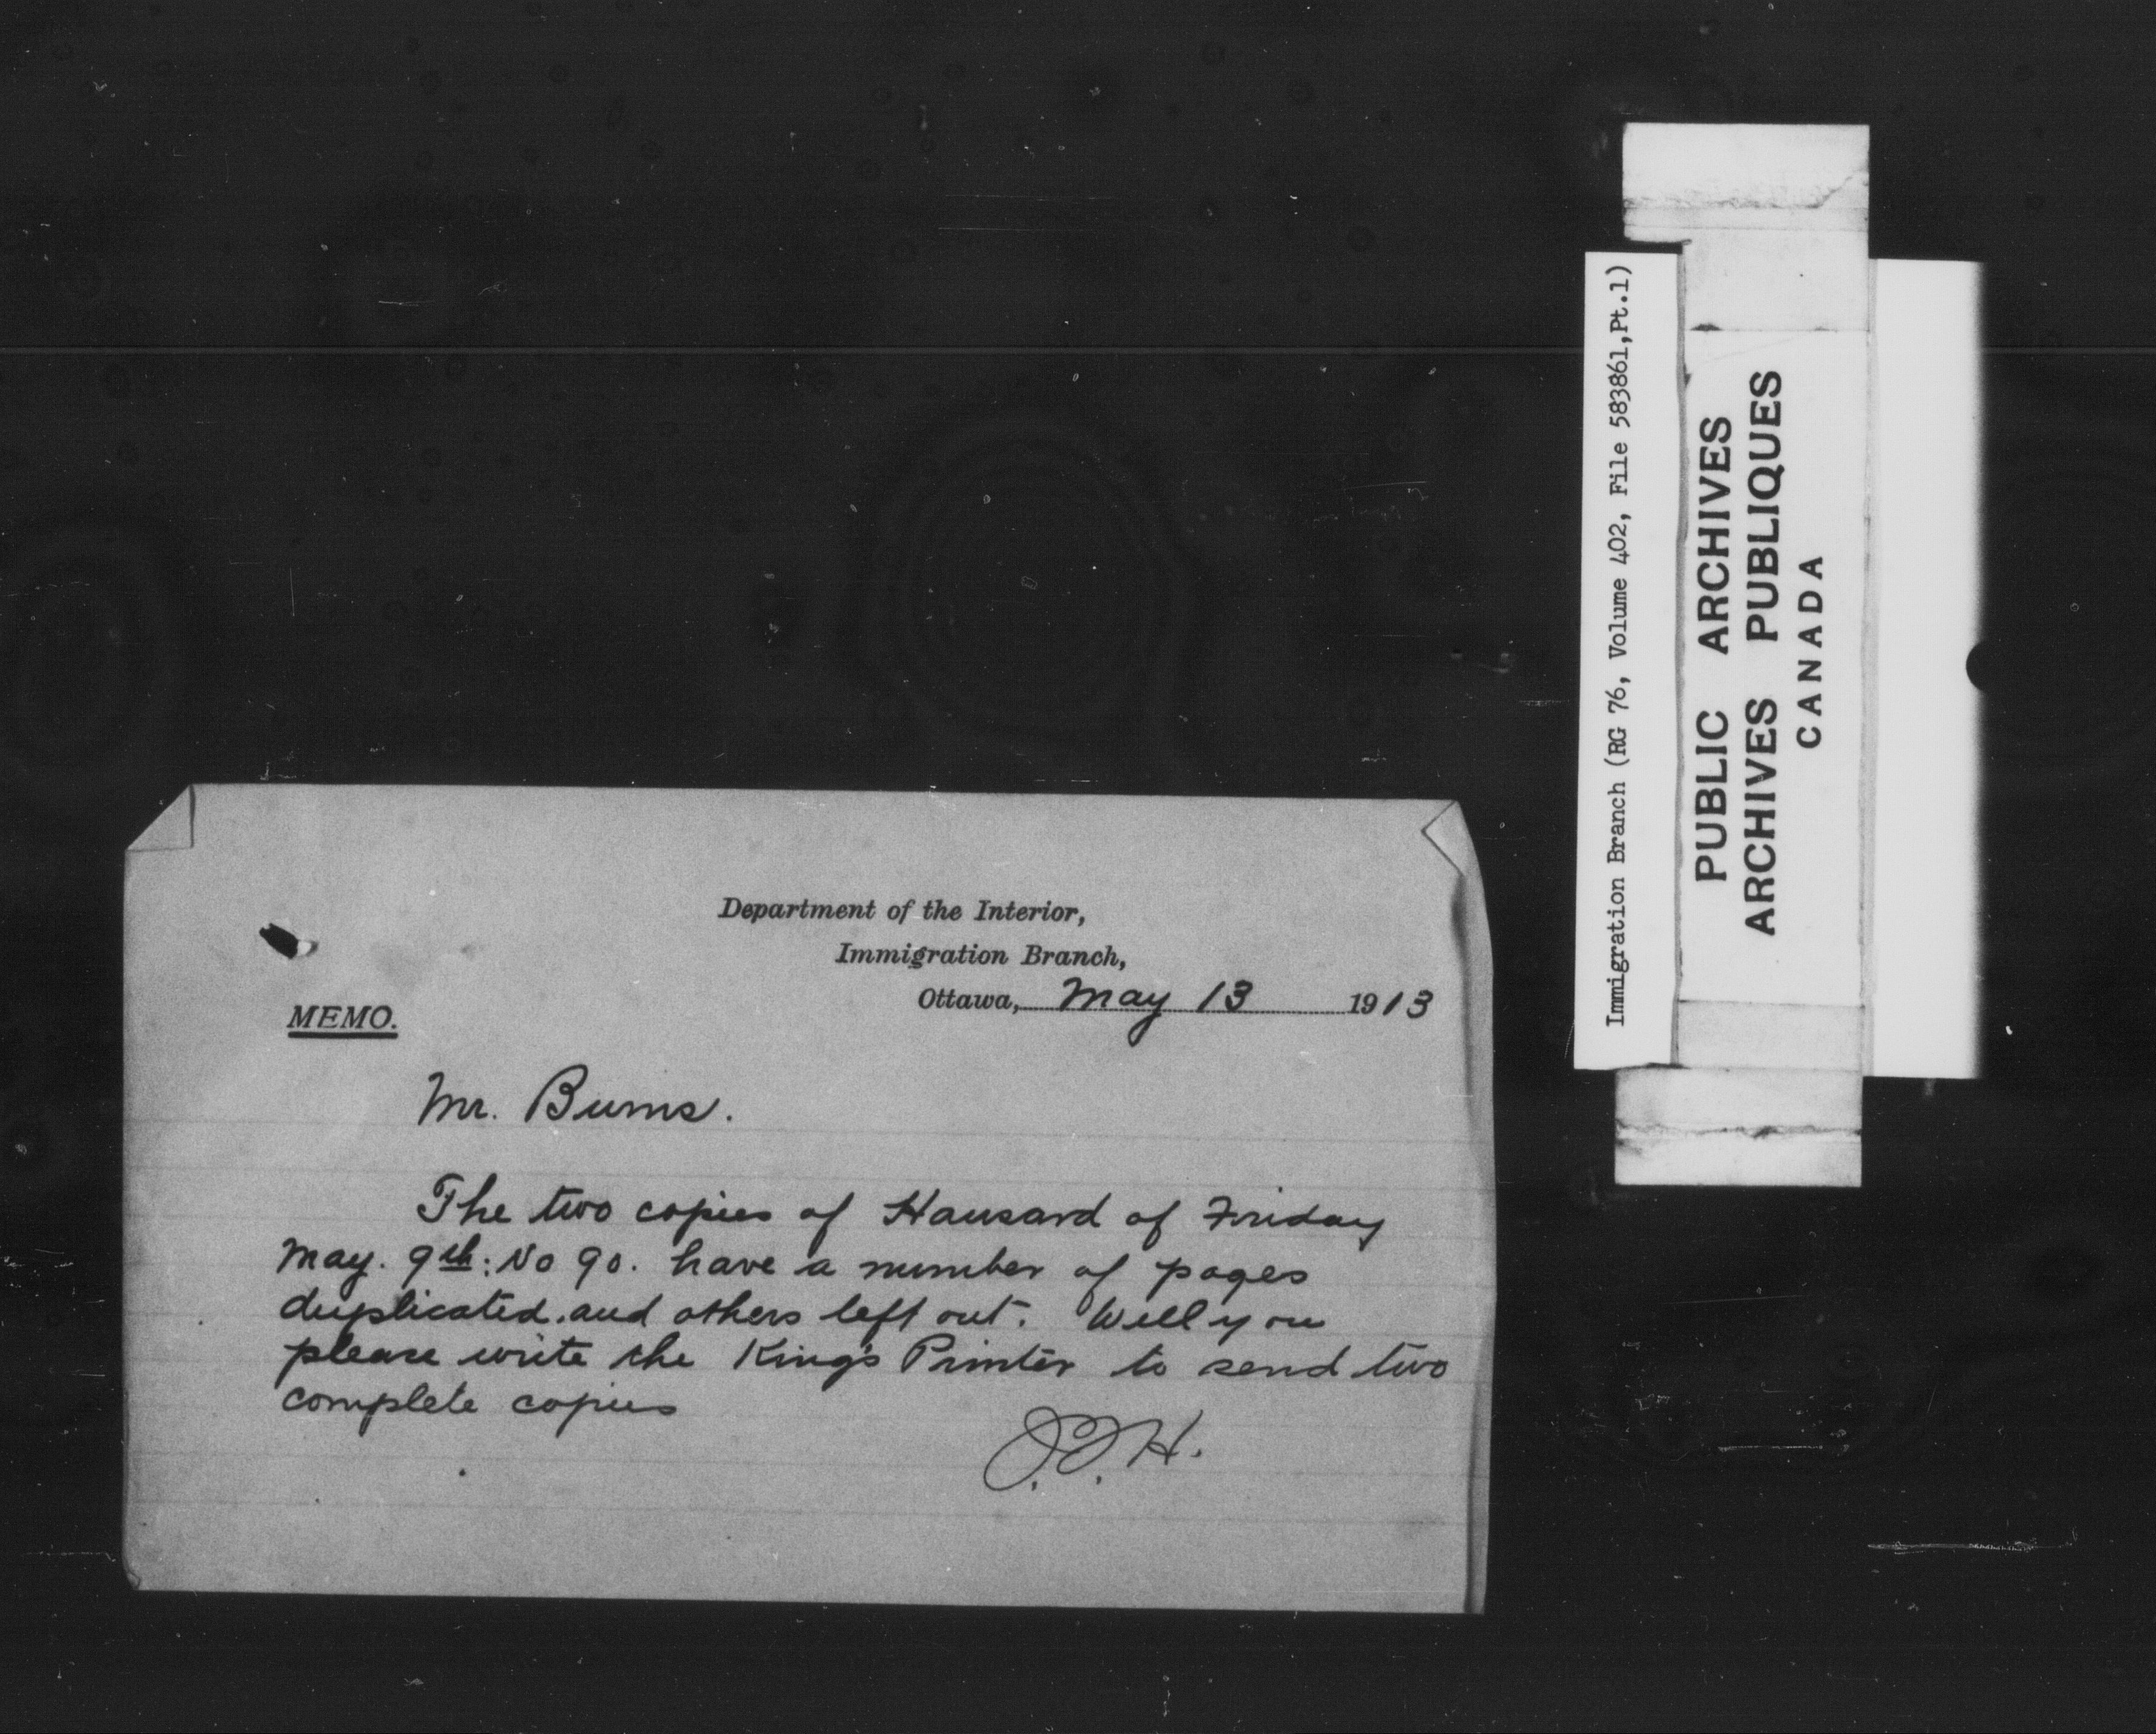 Department of the Interior,
Immigration Branch,
Ottawa, May 13 1913
MEMO.
Mr. Burns.
The two copies of Hansard of Friday
May. 9th: No 90. have a number of pages
duplicated. and others left out. Will you
please write the King's Printer to send two
complete copies
J.J.H.
Immigration Branch (RG 76, Volume 402, File 583861,Pt.1)
PUBLIC ARCHIVES
ARCHIVES PUBLIQUES
CANADA